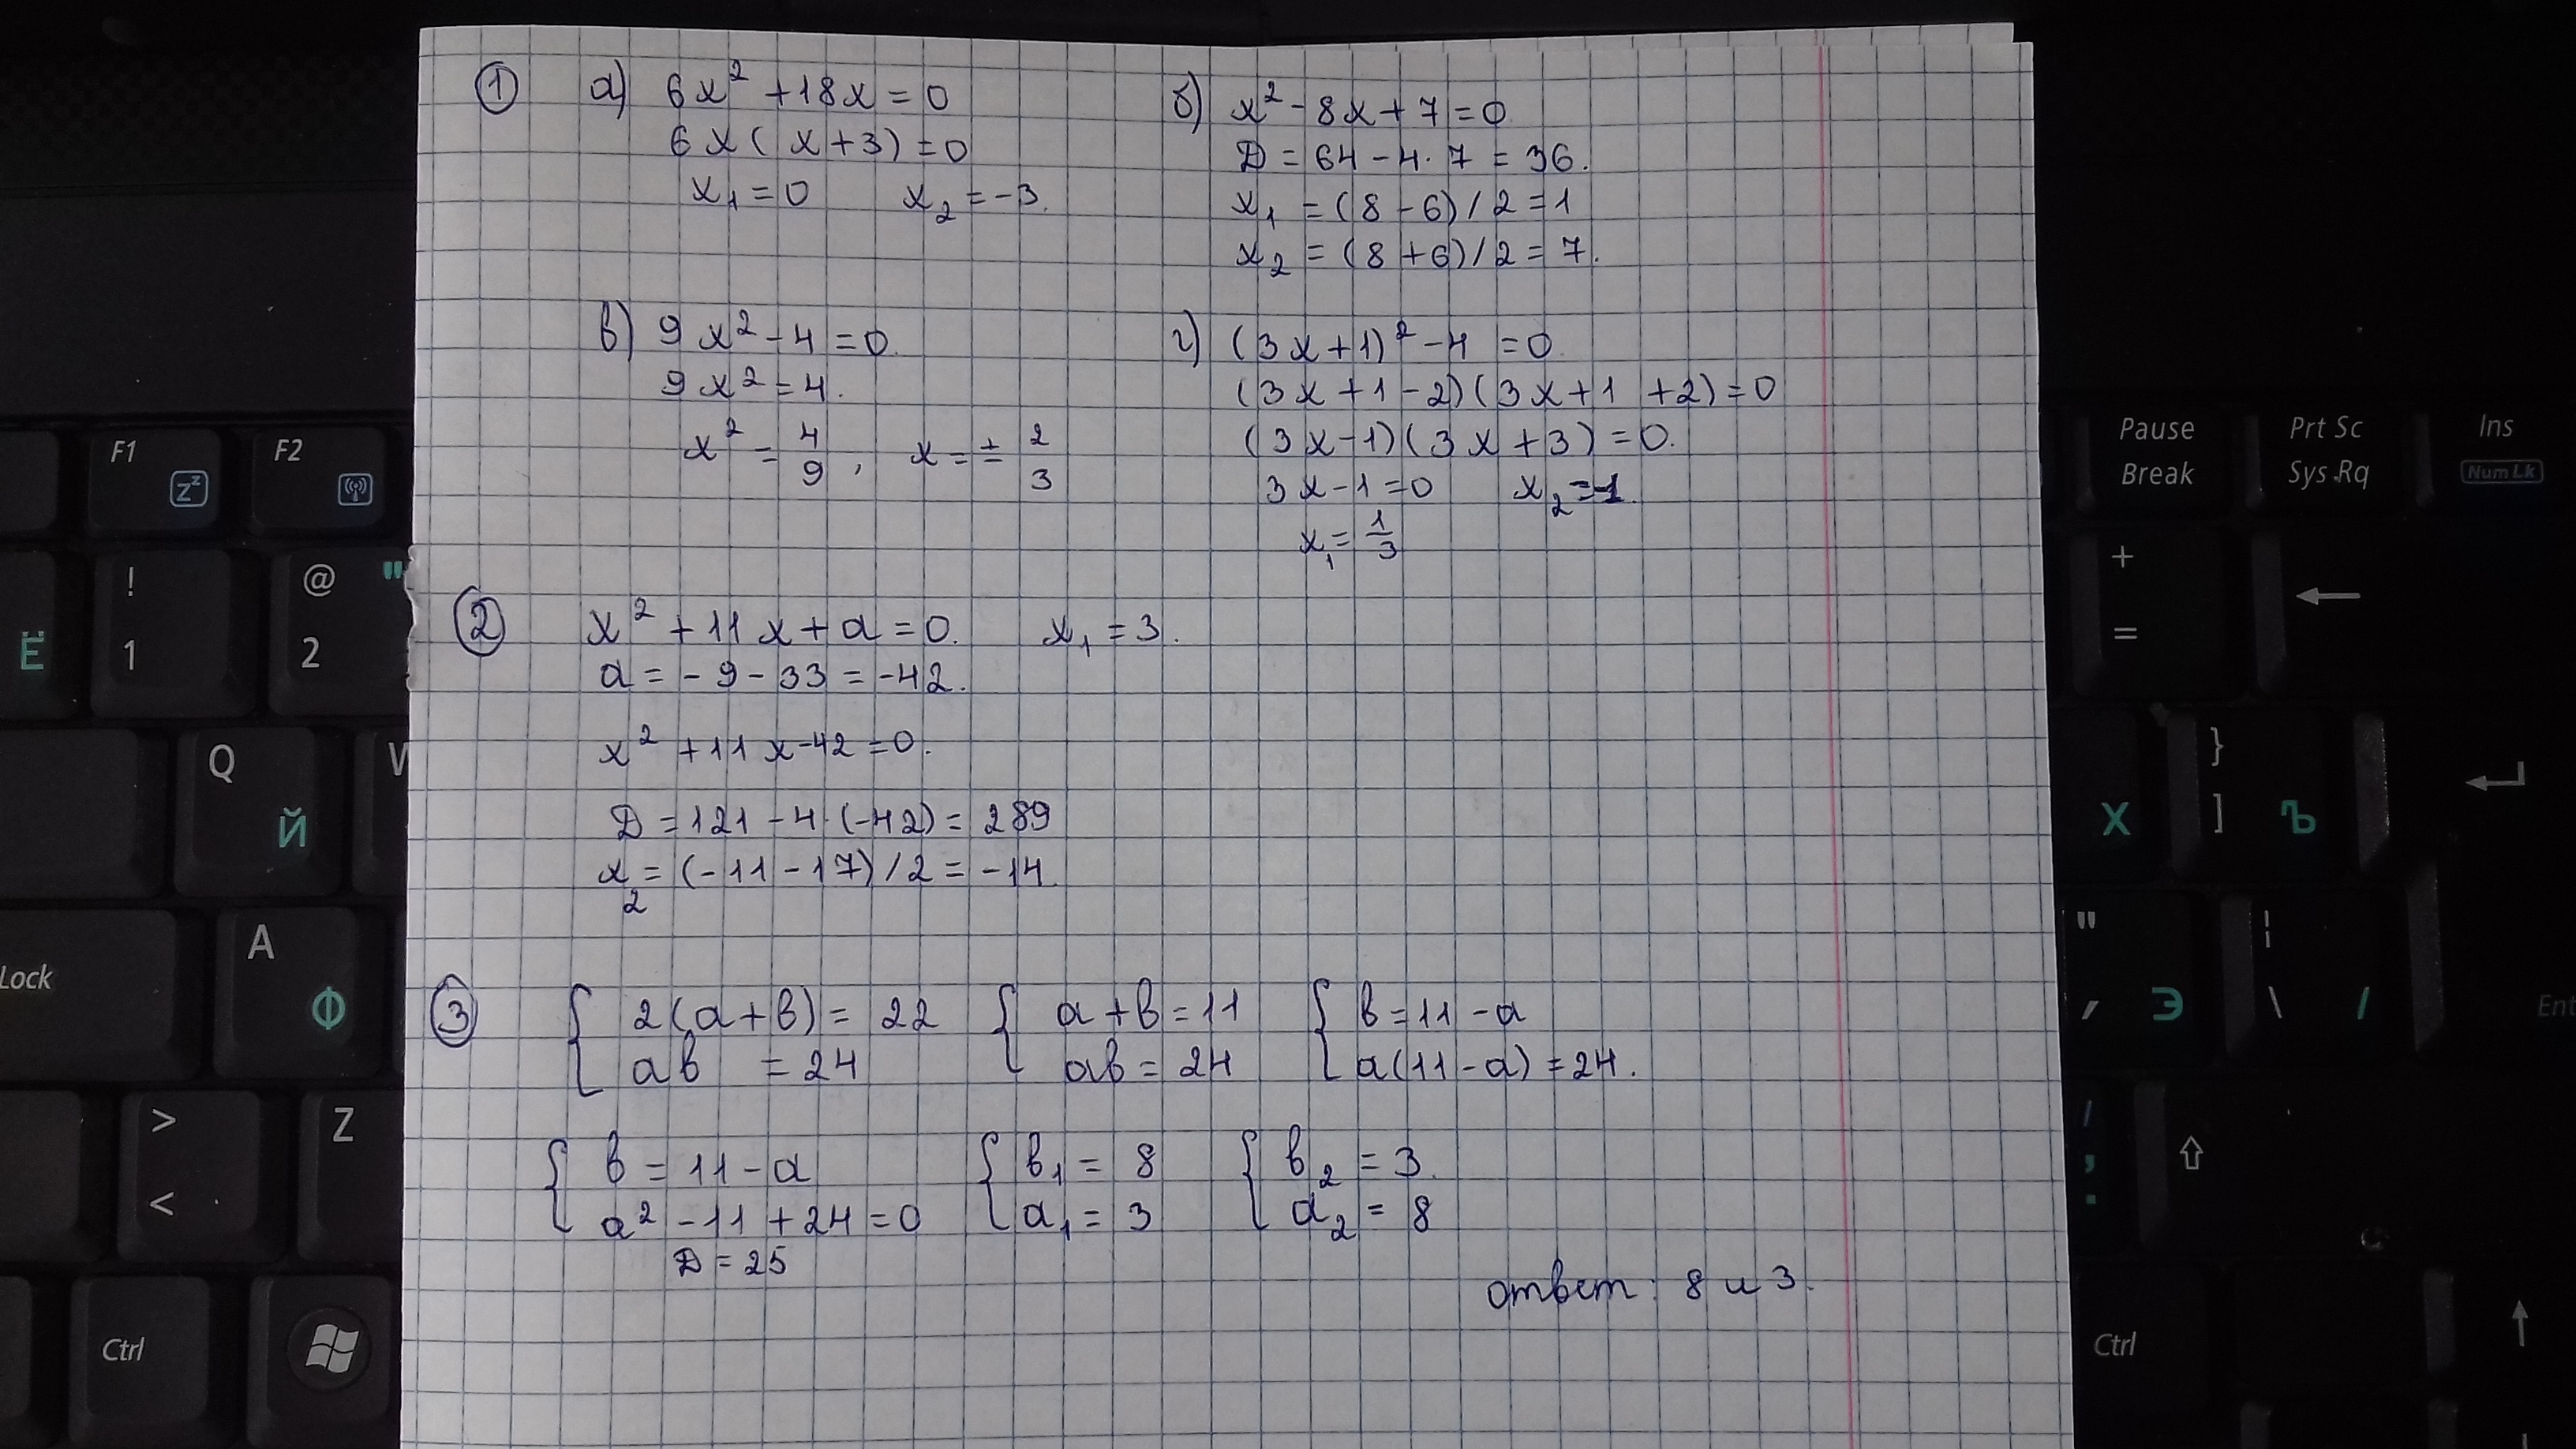 ① а) 6x² + 18x = 0
6x(x+3) = 0
x₁ = 0 x₂ = -3.
б) x² - 8x + 7 = 0
D = 64 - 4·7 = 36.
x₁ = (8 - 6)/2 = 1
x₂ = (8 + 6)/2 = 7.
в) 9x² - 4 = 0.
9x² = 4.
x² = 4/9, x = ± 2/3
г) (3x+1)² - 4 = 0
(3x+1-2)(3x+1+2) = 0
(3x-1)(3x+3) = 0.
3x-1=0 x₂ = -1.
x₁ = 1/3
② x² + 11x + a = 0. x₁ = 3.
a = -9 - 33 = -42.
x² + 11x - 42 = 0.
D = 121 - 4·(-42) = 289
x₂ = (-11 - 17)/2 = -14.
③ { 2(a+в) = 22 { a+в = 11 { в = 11 - a
aв = 24 aв = 24 a(11-a) = 24.
{ в = 11 - a { в₁ = 8 { в₂ = 3.
a² - 11 + 24 = 0 a₁ = 3 a₂ = 8
D = 25
ответ: 8 и 3.
F1
F2
Pause
Break
Prt Sc
Sys Rq
Ins
Num Lk
! 1
@ " 2
Ё
+ =
←
Q Й
W
Х
} ] Ъ
Lock
A Ф
" ' Э
¦ \ /
Ent
> <
Z
/ ; , .
⇧
Ctrl
Ctrl
↑